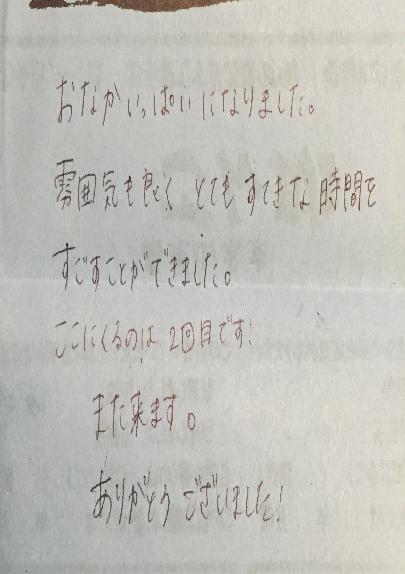 おなかいっぱいになりました。
雰囲気も良く、とてもすてきな時間を
すごすことができました。
ここにくるのは2回目です!
また来ます。
ありがとうございました!